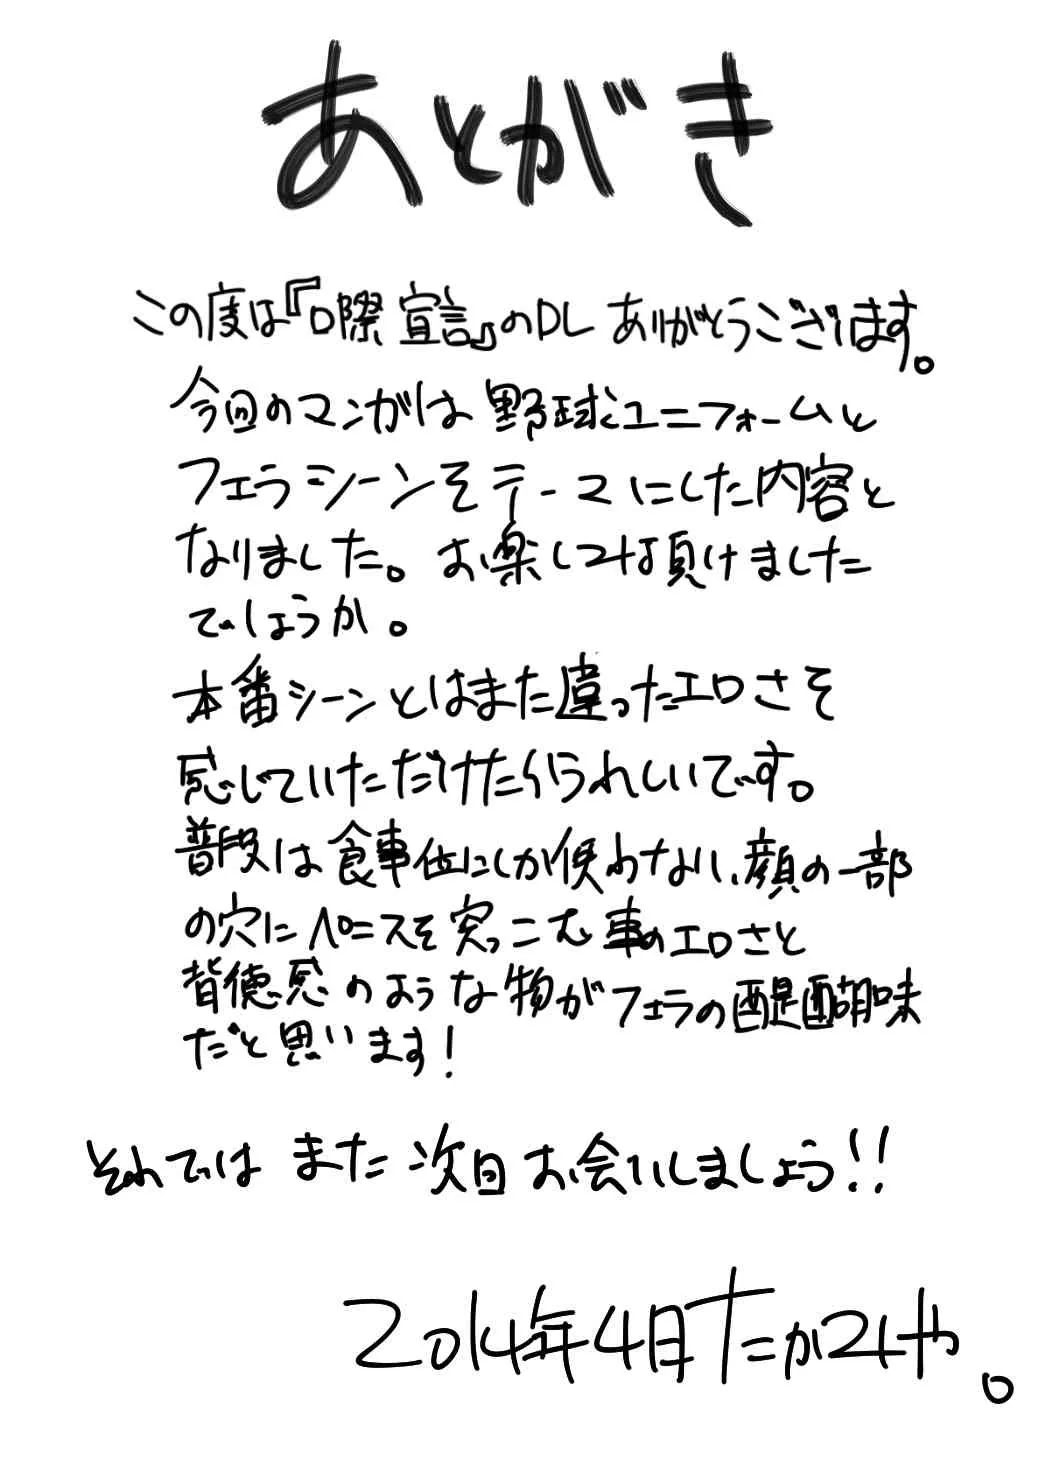 あとがき
この度は『口際宣言』のDLありがとうございます。
今回のマンガは野球ユニフォームと
フェラシーンをテーマにした内容と
なりました。お楽しみ頂けました
でしょうか。
本番シーンとはまた違ったエロさを
感じていただけたらうれしいです。
普段は食事位にしか使わない、顔の一部
の穴にペニスを突っこむ事のエロさと
背徳感のような物がフェラの醍醐味
だと思います!
それではまた次回お会いしましょう!!
2014年4月たかみや。